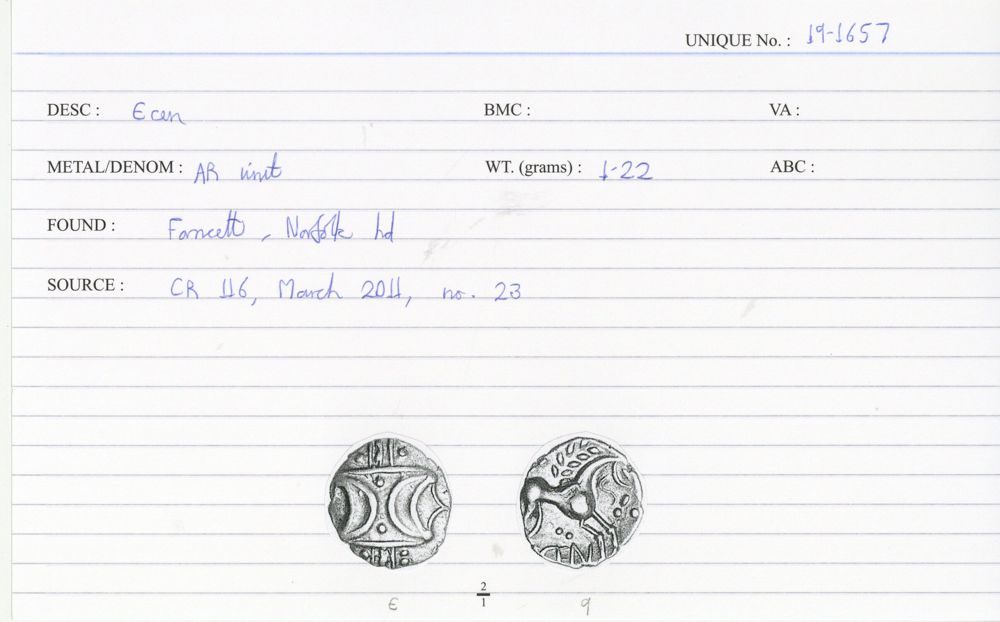 UNIQUE No. : 19-1657
DESC : Ecen BMC : VA :
METAL/DENOM : AR unit WT. (grams) : 1.22 ABC :
FOUND : Forncett, Norfolk hd
SOURCE : CR 116, March 2011, no. 23
2
1
E 9